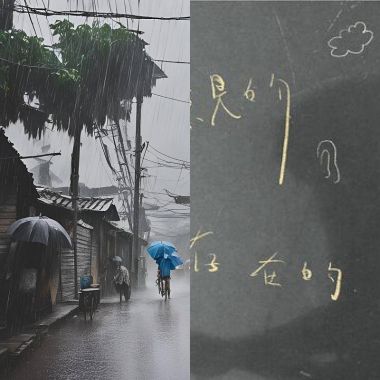 見的
存在的